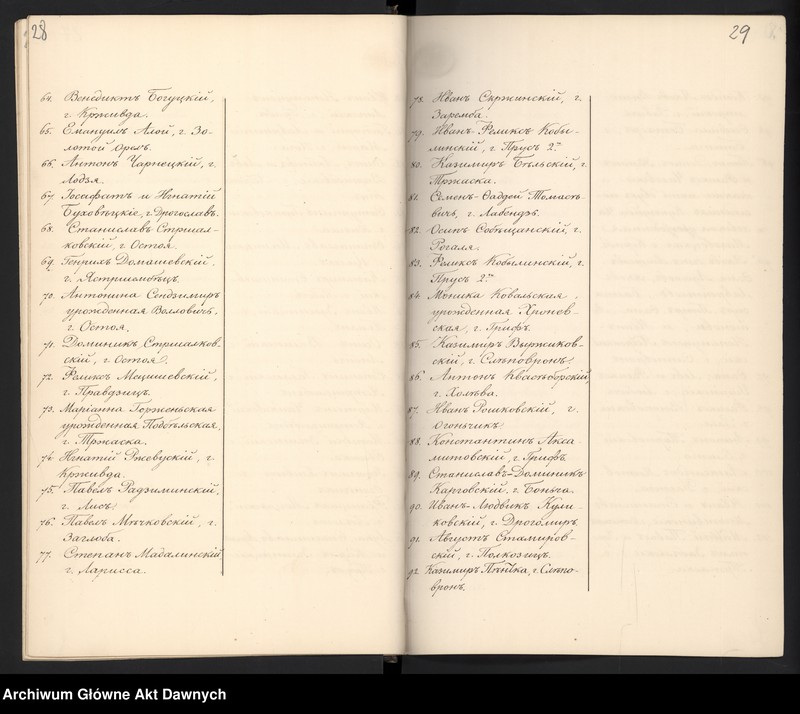 28
64. Венедиктъ Богуцкій,
г. Крживда.
65. Емануилъ Алой, г. Зо-
лотой Орелъ.
66. Антонъ Чарнецкій, г.
Лодзя.
67. Іосафатъ и Игнатій
Буховѣцкіе, г. Дрогославъ.
68. Станиславъ Стршал-
ковскій, г. Остоя.
69. Генрихъ Домашевскій,
г. Ястршембѣцъ.
70. Антонина Сендзимиръ
урожденная Волловичъ,
г. Остоя.
71. Доминикъ Стршалков-
скій, г. Остоя.
72. Феликсъ Мецишевскій,
г. Правдзицъ.
73. Маріанна Горженьская
урожденная Подбѣльская,
г. Тржаска.
74. Игнатій Ржевускій, г.
Крживда.
75. Павелъ Радзиминскій,
г. Лисъ.
76. Павелъ Мѣчковскій, г.
Заглоба.
77. Степанъ Мадалинскій
г. Ларисса.
29
78. Иванъ Скржинскій, г.
Заремба.
79. Иванъ-Феликсъ Кобы-
линскій, г. Прусъ 2.
80. Казимиръ Бѣльскій, г.
Тржаска.
81. Семенъ-Фаддей Томаше-
вичъ, г. Лабендзь.
82. Осипъ Собѣщанскій, г.
Рогаля.
83. Феликсъ Кобылинскій, г.
Прусъ 2.
84. Моника Ковальская,
урожденная Хронов-
ская, г. Грифъ.
85. Казимиръ Выржиков-
скій, г. Слѣповронъ.
86. Антонъ Квасѣборскій,
г. Холѣва.
87. Иванъ Рошковскій, г.
Огоньчикъ.
88. Константинъ Акса
митовскій, г. Грифъ.
89. Станиславъ-Доминикъ
Карговскій, г. Боньча.
90. Иванъ-Людвикъ Кули-
ковскій, г. Дрогомиръ.
91. Августъ Стамиров-
скій, г. Полкозицъ.
92. Казимиръ г. Слѣпо-
вронъ.
Archiwum Główne Akt Dawnych